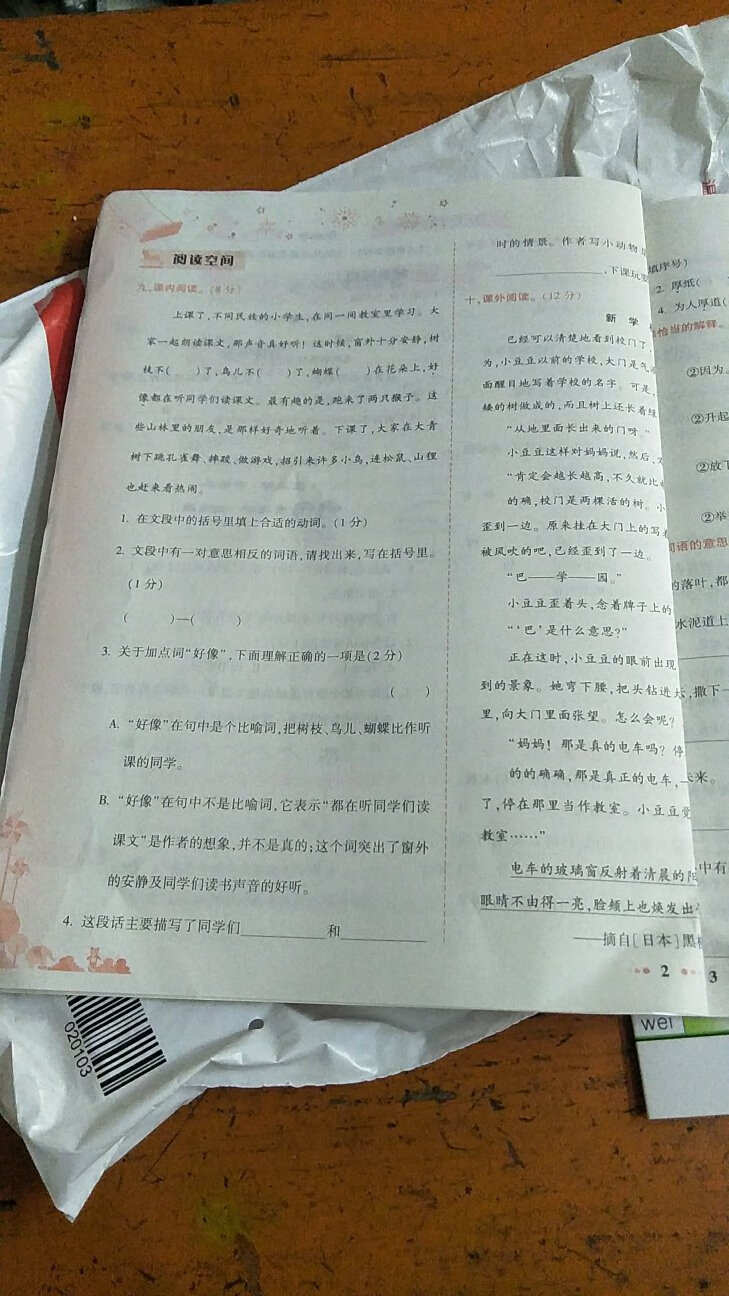 阅读空间
九、课内阅读。(8分)
上课了,不同民族的小学生,在同一间教室里学习。大
家一起朗读课文,那声音真好听!这时候,窗外十分安静,树
枝不(　　)了,鸟儿不(　　)了,蝴蝶(　　)在花朵上,好
像都在听同学们读课文。最有趣的是,跑来了两只猴子。这
些山林里的朋友,是那样好奇地听着。下课了,大家在大青
树下跳孔雀舞、摔跤、做游戏,招引来许多小鸟,连松鼠、山狸
也赶来看热闹。
1. 在文段中的括号里填上合适的动词。(1分)
2. 文段中有一对意思相反的词语,请找出来,写在括号里。
(1分)
(　　)—(　　)
3. 关于加点词“好像”,下面理解正确的一项是(2分)
(　　)
A. “好像”在句中是个比喻词,把树枝、鸟儿、蝴蝶比作听
课的同学。
B. “好像”在句中不是比喻词,它表示“都在听同学们读
课文”是作者的想象,并不是真的;这个词突出了窗外
的安静及同学们读书声音的好听。
4. 这段话主要描写了同学们________和________
时的情景。作者写小动物
________,下课玩
十、课外阅读。(12分)
新 学
已经可以清楚地看到校门了,
为,小豆豆以前的学校,大门是气
面醒目地写着学校的名字。可是,
矮的树做成的,而且树上还长着绿
“从地里面长出来的门呀”
小豆豆这样对妈妈说,然后,又
“肯定会越长越高,不久就比
的确,校门是两棵活的树。小
歪到一边。原来挂在大门上的写着
被风吹的吧,已经歪到了一边。
“巴——学——园。”
小豆豆歪着头,念着牌子上的
“‘巴’是什么意思?”
正在这时,小豆豆的眼前出现
到的景象。她弯下腰,把头钻进
里,向大门里面张望。怎么会呢?
“妈妈!那是真的电车吗?停
的的确确,那是真正的电车,
了,停在那里当作教室。小豆豆觉
教室……”
电车的玻璃窗反射着清晨的阳
眼睛不由得一亮,脸颊上也焕发出
——摘自[日本]黑
2
填序号)
2. 厚纸(
4. 为人厚道(
恰当的解释。
②因为。
②升起
②放下
②举
词语的意思
的落叶,都
水泥道上
,撒下一
来。
中有
3
020103
wei